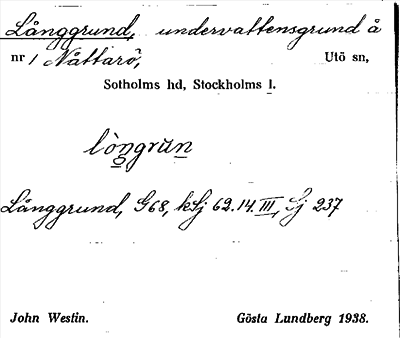 Långgrund, undervattensgrund å
nr 1 Nåttarö, Utö sn,
Sotholms hd, Stockholms l.
lòngrun
Långgrund, G68, kSj 62.14.III, Sj 237
John Westin. Gösta Lundberg 1938.